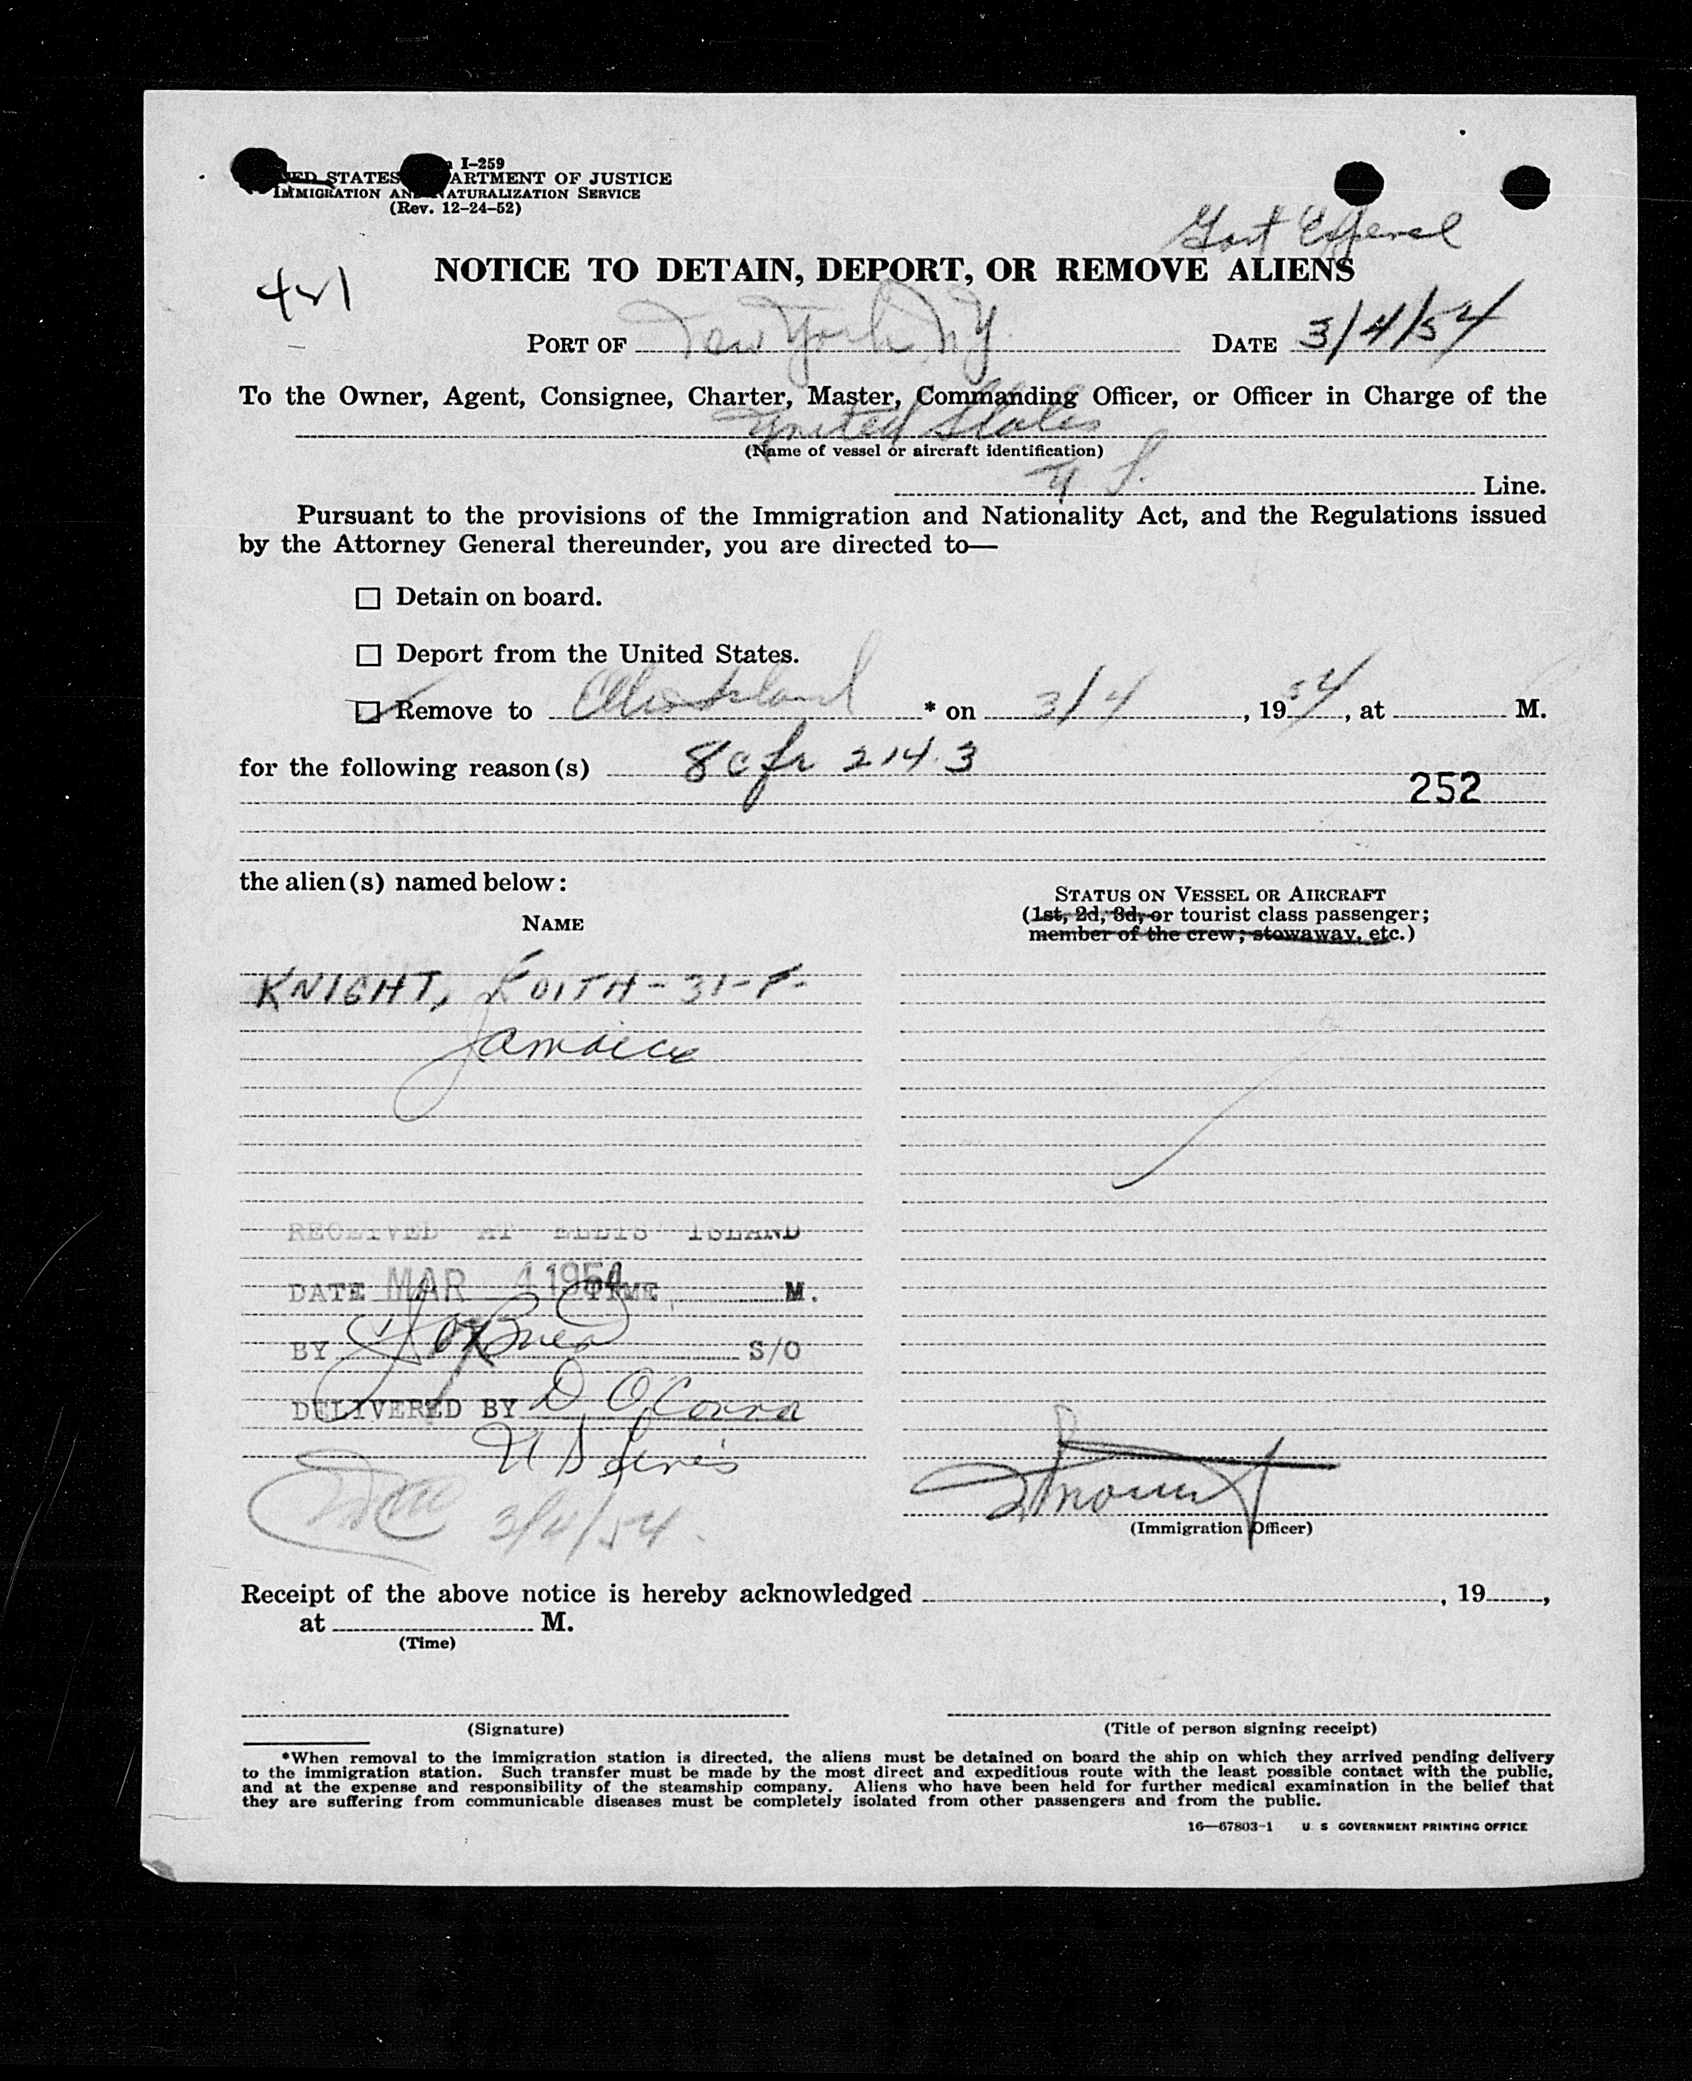 I-259
UNITED STATES DEPARTMENT OF JUSTICE
IMMIGRATION AND NATURALIZATION SERVICE
(Rev. 12-24-52)
Govt Expense
421
NOTICE TO DETAIN, DEPORT, OR REMOVE ALIENS
PORT OF New York, NY. DATE 3/4/54
To the Owner, Agent, Consignee, Charter, Master, Commanding Officer, or Officer in Charge of the
United States
(Name of vessel or aircraft identification)
U S. Line.
Pursuant to the provisions of the Immigration and Nationality Act, and the Regulations issued
by the Attorney General thereunder, you are directed to—
☐ Detain on board.
☐ Deport from the United States.
☑ Remove to Ellis Island * on 3/4, 1954, at M.
for the following reason(s) 8 cfr 214.3
252
the alien(s) named below:
NAME
STATUS ON VESSEL OR AIRCRAFT
(1st, 2d, 3d, or tourist class passenger;
member of the crew; stowaway, etc.)
KNIGHT, EDITH - 31 - F -
Jamaica
RECEIVED AT ELLIS ISLAND
DATE MAR 4 1954 TIME M.
BY S/O
DELIVERED BY D. O'Connor
U S Lines
3/4/54.
(Immigration Officer)
Receipt of the above notice is hereby acknowledged , 19 ,
at M.
(Time)
(Signature)
(Title of person signing receipt)
*When removal to the immigration station is directed, the aliens must be detained on board the ship on which they arrived pending delivery
to the immigration station. Such transfer must be made by the most direct and expeditious route with the least possible contact with the public,
and at the expense and responsibility of the steamship company. Aliens who have been held for further medical examination in the belief that
they are suffering from communicable diseases must be completely isolated from other passengers and from the public.
16—67803-1 U S GOVERNMENT PRINTING OFFICE